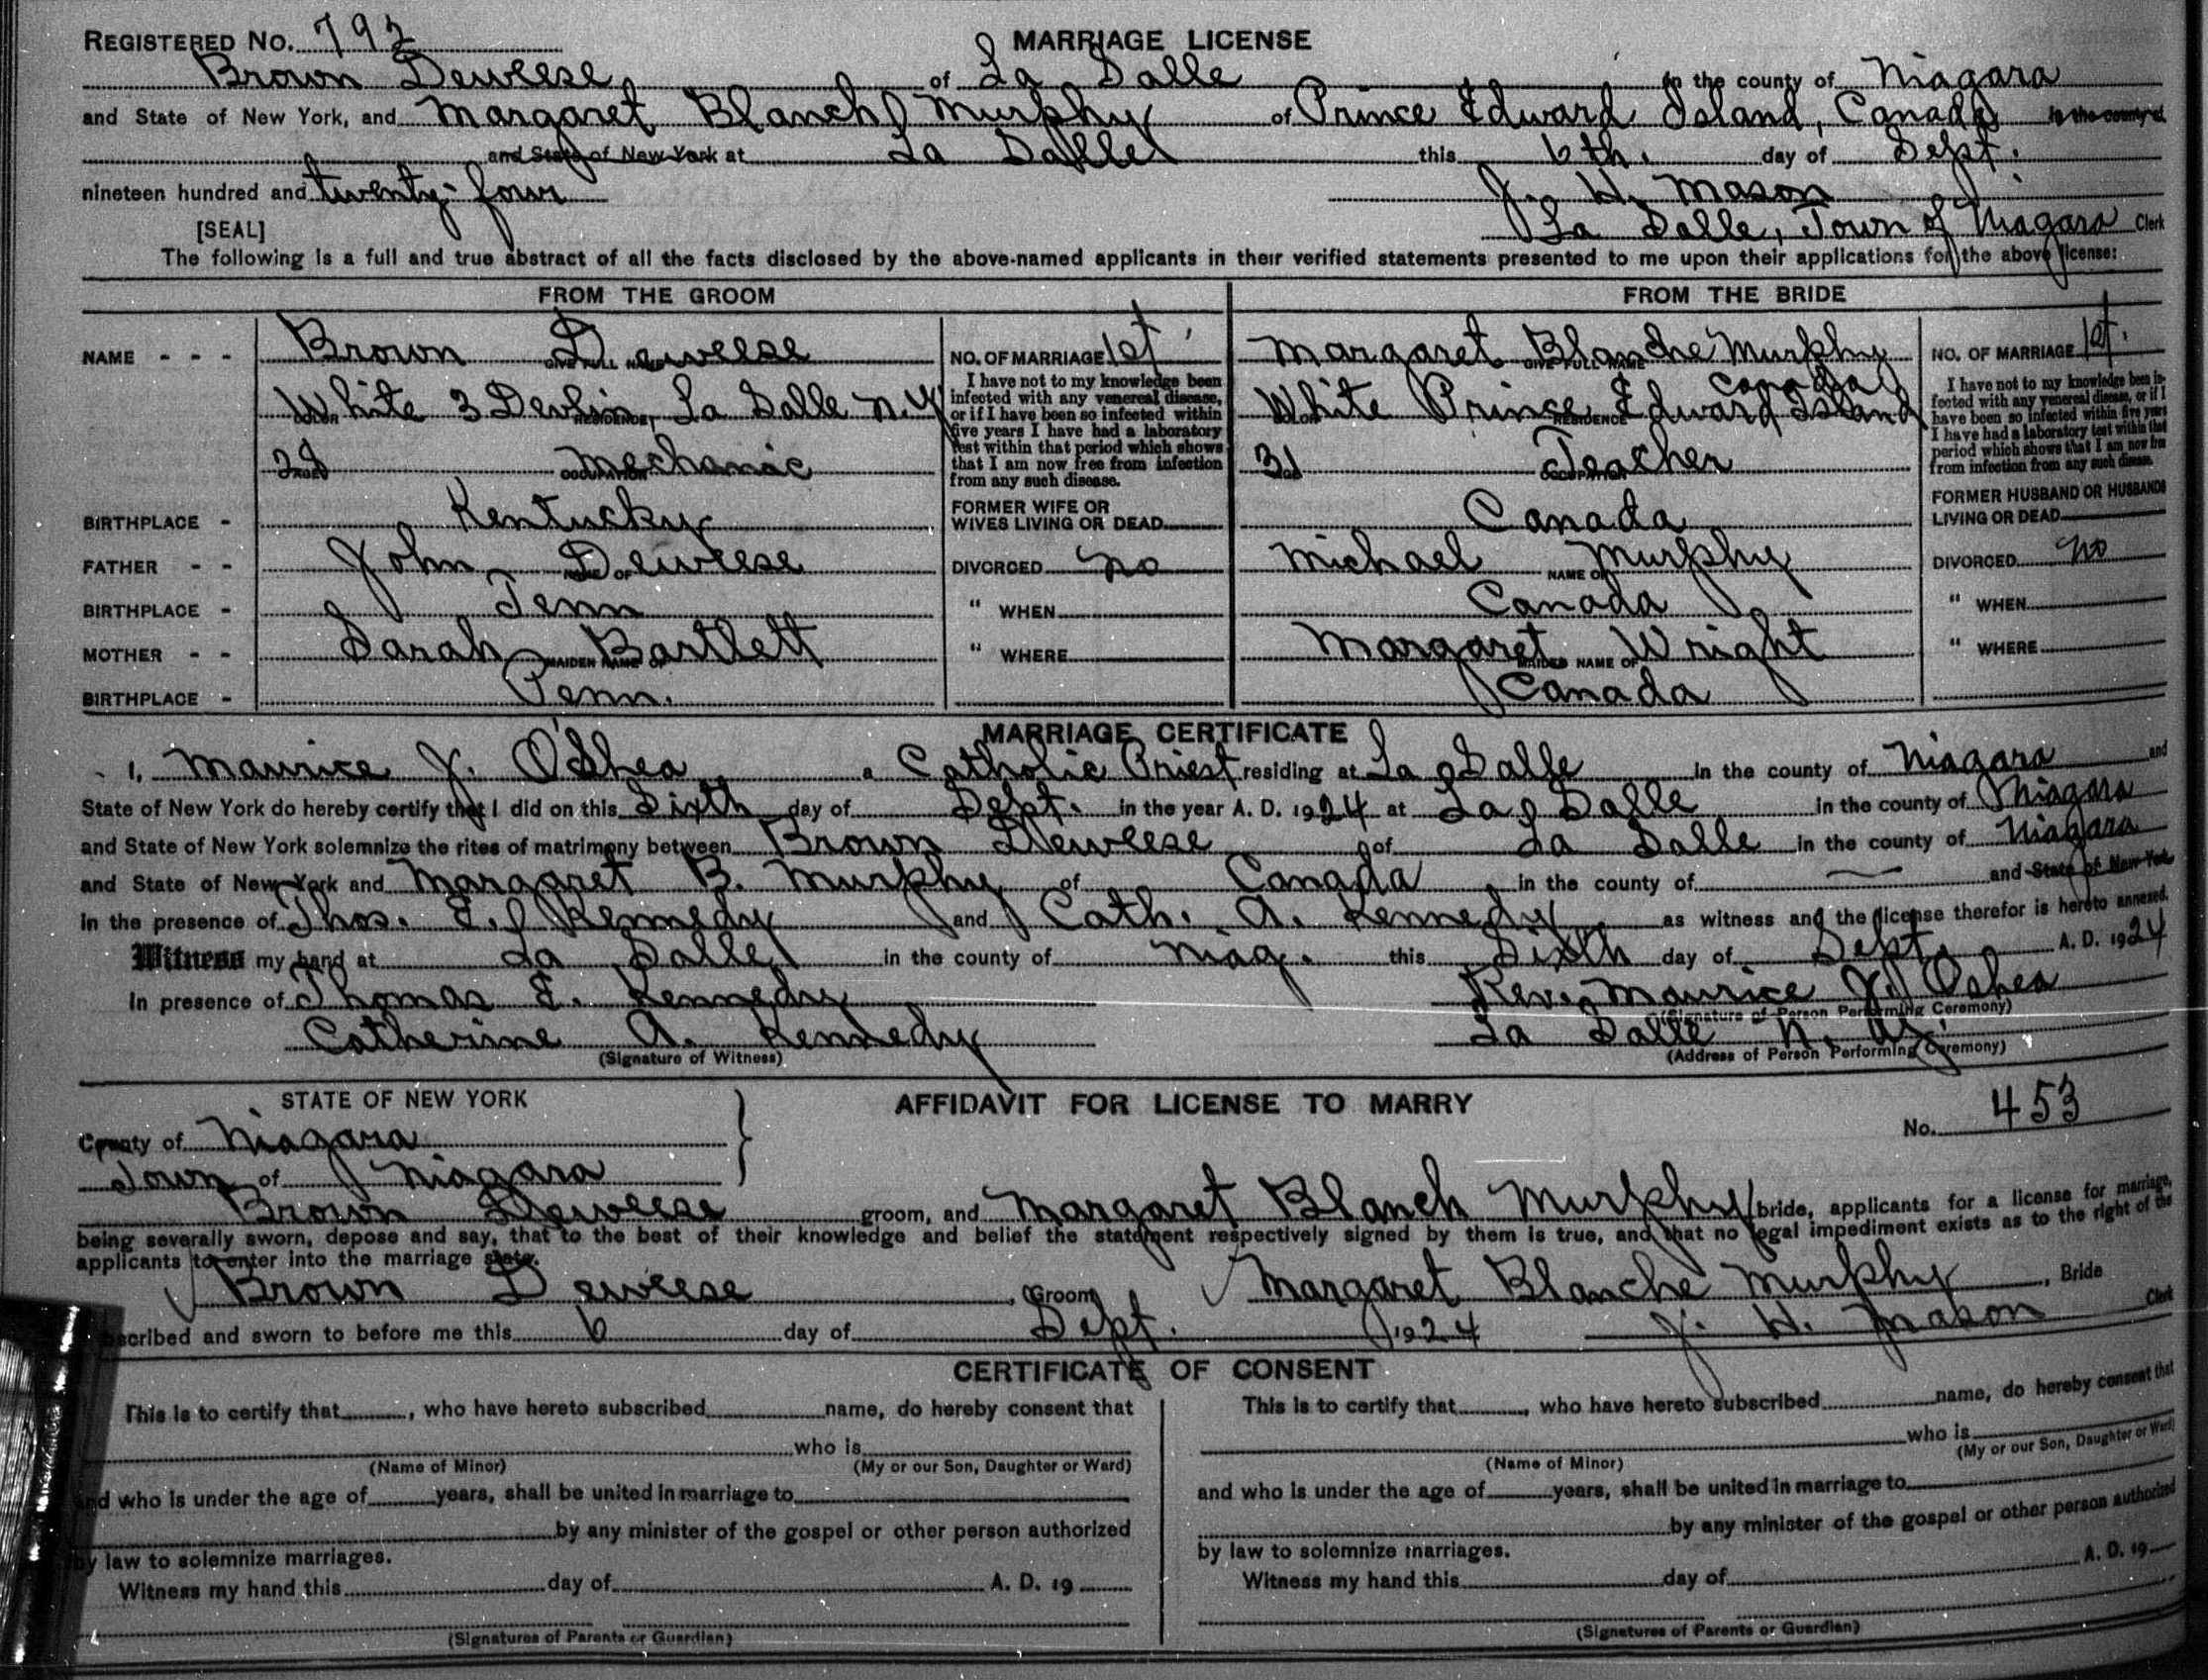 REGISTERED NO. 792 MARRIAGE LICENSE
Brown Deweese of La Salle in the county of Niagara
and State of New York, and Margaret Blanch Murphy of Prince Edward Island, Canada in the county of
and State of New York at La Salle this 6th. day of Sept.
nineteen hundred and twenty-four J. H. Mason
[SEAL] La Salle, Town of Niagara Clerk
The following is a full and true abstract of all the facts disclosed by the above-named applicants in their verified statements presented to me upon their applications for the above license:
FROM THE GROOM
NAME - - - Brown Deweese
GIVE FULL NAME
White 3 Devlin, La Salle N.Y.
COLOR RESIDENCE
Mechanic
AGE OCCUPATION
BIRTHPLACE - Kentucky
FATHER - - John Deweese
NAME OF
BIRTHPLACE - Tenn
MOTHER - - Sarah Bartlett
MAIDEN NAME OF
BIRTHPLACE - Penn.
NO. OF MARRIAGE 1st
I have not to my knowledge been
infected with any venereal disease,
or if I have been so infected within
five years I have had a laboratory
test within that period which shows
that I am now free from infection
from any such disease.
FORMER WIFE OR
WIVES LIVING OR DEAD
DIVORCED no
" WHEN
" WHERE
FROM THE BRIDE
Margaret Blanche Murphy
GIVE FULL NAME
Canada
White Prince Edward Island
COLOR RESIDENCE
31 Teacher
OCCUPATION
Canada
Michael Murphy
NAME OF
Canada
Margaret Wright
MAIDEN NAME OF
Canada
NO. OF MARRIAGE 1st.
I have not to my knowledge been in-
fected with any venereal disease, or if I
have been so infected within five years
I have had a laboratory test within that
period which shows that I am now free
from infection from any such disease.
FORMER HUSBAND OR HUSBANDS
LIVING OR DEAD
DIVORCED no
" WHEN
" WHERE
MARRIAGE CERTIFICATE
I, Maurice J. O'Shea a Catholic Priest residing at La Salle in the county of Niagara and
State of New York do hereby certify that I did on this Sixth day of Sept. in the year A. D. 1924 at La Salle in the county of Niagara
and State of New York solemnize the rites of matrimony between Brown Deweese of La Salle in the county of Niagara
and State of New York and Margaret B. Murphy of Canada in the county of — and State of New York
in the presence of Thos. E. Kennedy and Cath. A. Kennedy as witness and the license therefor is hereto annexed.
Witness my hand at La Salle in the county of Niag. this Sixth day of Sept. A. D. 1924
In presence of Thomas E. Kennedy Rev. Maurice J. Oshea
(Signature of Person Performing Ceremony)
Catherine A. Kennedy La Salle N. Y.
(Signature of Witness) (Address of Person Performing Ceremony)
STATE OF NEW YORK AFFIDAVIT FOR LICENSE TO MARRY
County of Niagara No. 453
Town of Niagara
Brown Deweese groom, and Margaret Blanch Murphy bride, applicants for a license for marriage,
being severally sworn, depose and say, that to the best of their knowledge and belief the statement respectively signed by them is true, and that no legal impediment exists as to the right of the
applicants to enter into the marriage state.
Brown Deweese, Groom Margaret Blanche Murphy, Bride
scribed and sworn to before me this 6 day of Sept. 1924 J. H. Mason Clerk
CERTIFICATE OF CONSENT
This is to certify that , who have hereto subscribed name, do hereby consent that
who is
(Name of Minor) (My or our Son, Daughter or Ward)
and who is under the age of years, shall be united in marriage to
by any minister of the gospel or other person authorized
by law to solemnize marriages.
Witness my hand this day of A. D. 19
(Signatures of Parents or Guardian)
This is to certify that , who have hereto subscribed name, do hereby consent that
who is
(Name of Minor) (My or our Son, Daughter or Ward)
and who is under the age of years, shall be united in marriage to
by any minister of the gospel or other person authorized
by law to solemnize marriages.
Witness my hand this day of A. D. 19
(Signatures of Parents or Guardian)